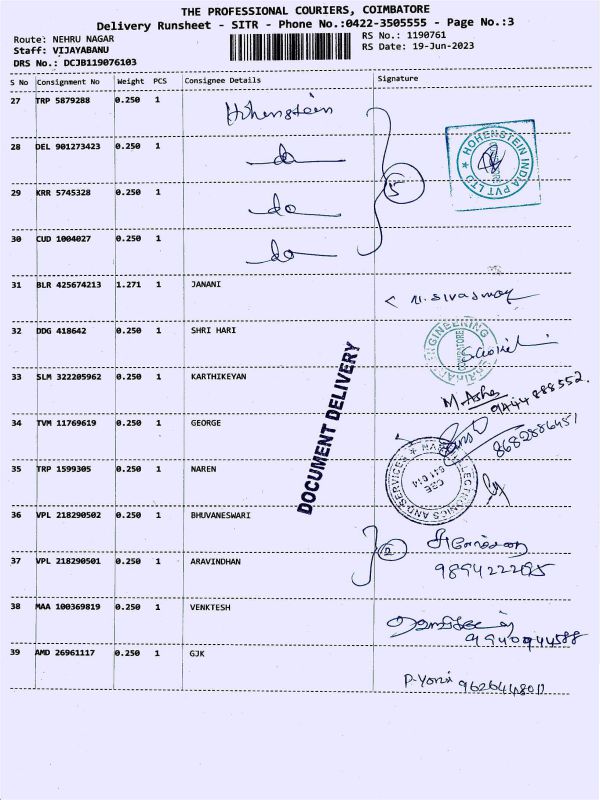 THE PROFESSIONAL COURIERS, COIMBATORE
Delivery Runsheet - SITR - Phone No.:0422-3505555 - Page No.:3
Route: NEHRU NAGAR
RS No.: 1190761
Staff: VIJAYABANU
RS Date: 19-Jun-2023
DRS No.: DCJB119076103
S No Consignment No Weight PCS Consignee Details Signature
27 TRP 5879288 0.250 1 Hohenstein
28 DEL 901273423 0.250 1 do
HOHENSTEIN INDIA PVT LTD
29 KRR 5745328 0.250 1 do
5
30 CUD 1004027 0.250 1 do
31 BLR 425674213 1.271 1 JANANI
32 DDG 418642 0.250 1 SHRI HARI
ENGINEERING
COIMBATORE
33 SLM 322205962 0.250 1 KARTHIKEYAN
DOCUMENT DELIVERY
34 TVM 11769619 0.250 1 GEORGE
35 TRP 1599305 0.250 1 NAREN
ELECTRONICS AND SERVICES
CBE
641 014
36 VPL 218290502 0.250 1 BHUVANESWARI
2
37 VPL 218290501 0.250 1 ARAVINDHAN
38 MAA 100369819 0.250 1 VENKTESH
39 AMD 26961117 0.250 1 GJK